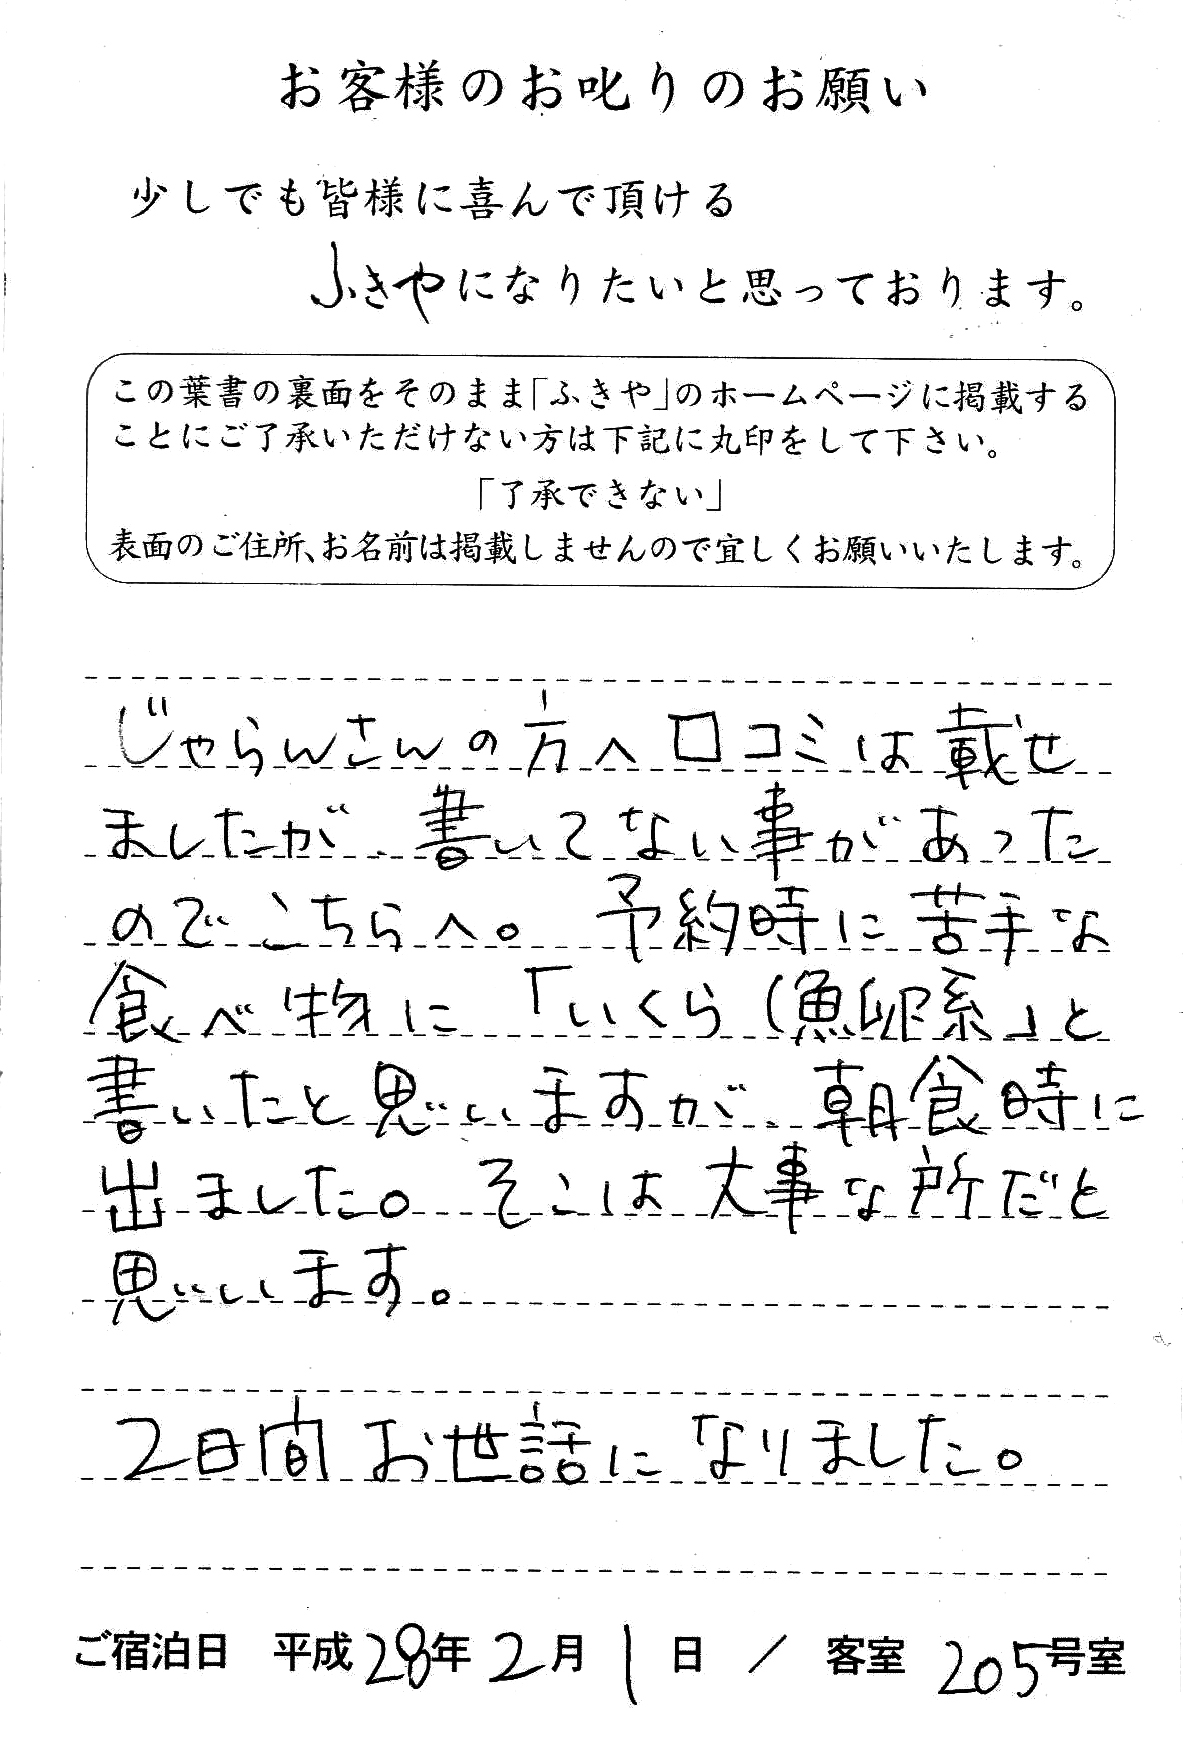 お客様のお叱りのお願い
少しでも皆様に喜んで頂ける
ふきやになりたいと思っております。
この葉書の裏面をそのまま「ふきや」のホームページに掲載する
ことにご了承いただけない方は下記に丸印をして下さい。
「了承できない」
表面のご住所、お名前は掲載しませんので宜しくお願いいたします。
じゃらんさんの方へ口コミは載せ
ましたが、書いてない事があった
のでこちらへ。予約時に苦手な
食べ物に「いくら(魚卵系」と
書いたと思いますが、朝食時に
出ました。そこは大事な所だと
思います。
2日間お世話になりました。
ご宿泊日 平成28年2月1日 / 客室 205号室